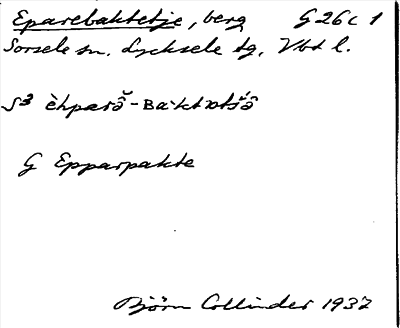 Eparebaktetje, berg G26c 1
Sorsele sn. Lycksele tg, Vbt l.
S3 èhparə̆-Bàktɒtśə̂
G Epparpakte
Björn Collinder 1937